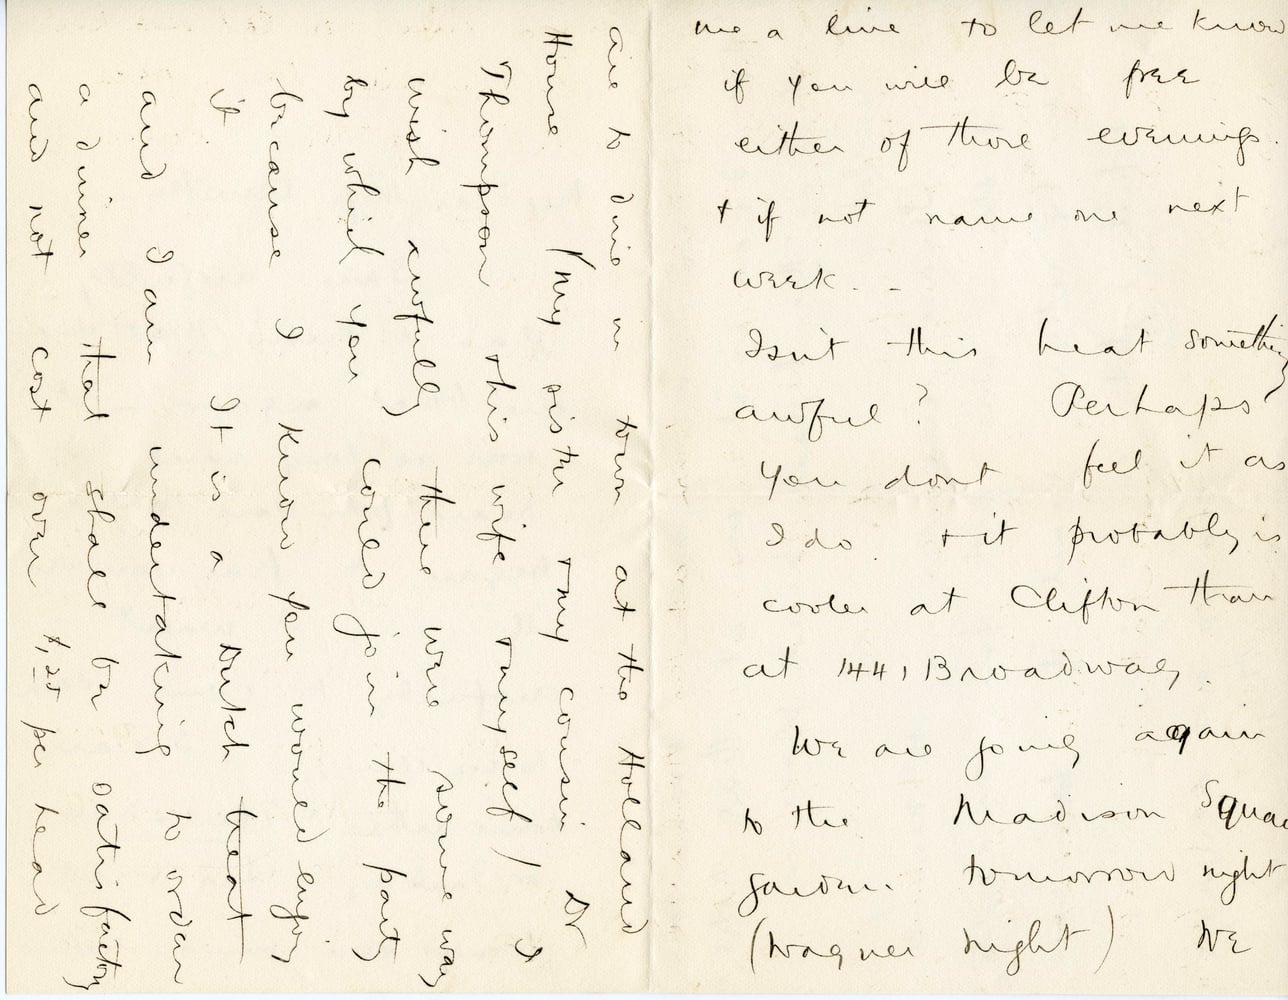 me a line to let me know
if you will be free
either of those evenings.
+ if not name one next
week. -
Isn't this heat something
awful? Perhaps
you dont feel it as
I do. + it probably is
cooler at Clifton than
at 1441 Broadway.
We are going again
to the Madison Square
garden tomorrow night
(Wagner night) We
are to dine in town at the Holland
House (my sister + my cousin Dr
Thompson + his wife + myself) I
wish awfully there were some way
by which you could join the party
because I know you would enjoy
it It is a Dutch treat
and I am undertaking to order
a dinner that shall be satisfactory
and not cost over $1.25 per head